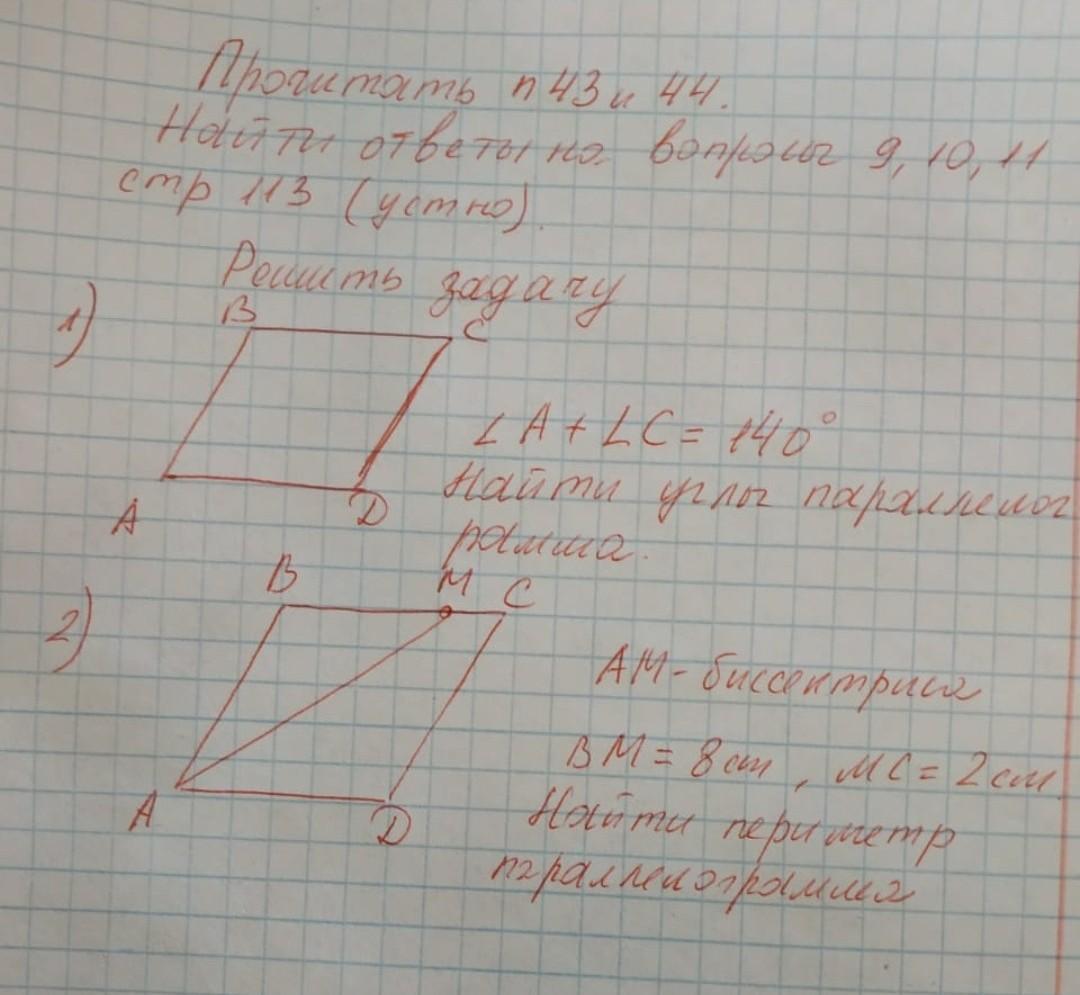 Прочитать п 43 и 44.
Найти ответы на вопросы 9, 10, 11
стр 113 (устно).
Решить задачу
1)
B C
∠A + ∠C = 140°
Найти углы параллелог
рамма.
A D
2)
B M C
AM - биссектриса
BM = 8 см, MC = 2 см
Найти периметр
параллелограмма
A D